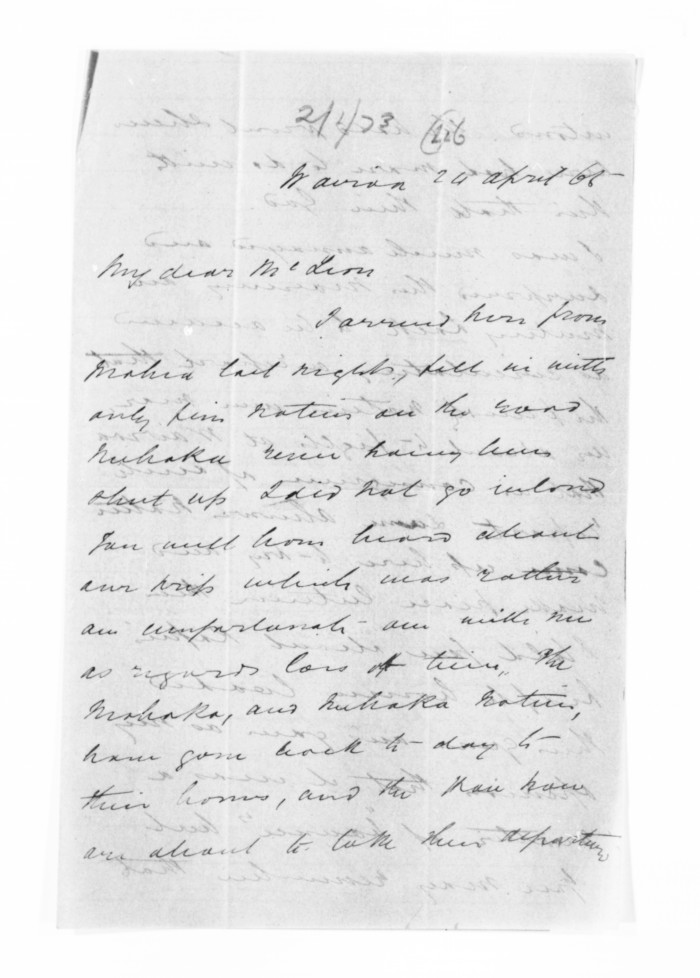 2/1/73
Wairoa 24 april 65
My dear McLean
I arrived here from
Mahia last night, fell in with
only five natives on the road
Nuhaka river having been
shut up I did not go inland
You will have heard about
our trip which was rather
an unfortunate one with me
as regards loss of time, The
Mohaka, and Nuhaka natives,
have gone back to day to
their homes, and the
are about to take their departure